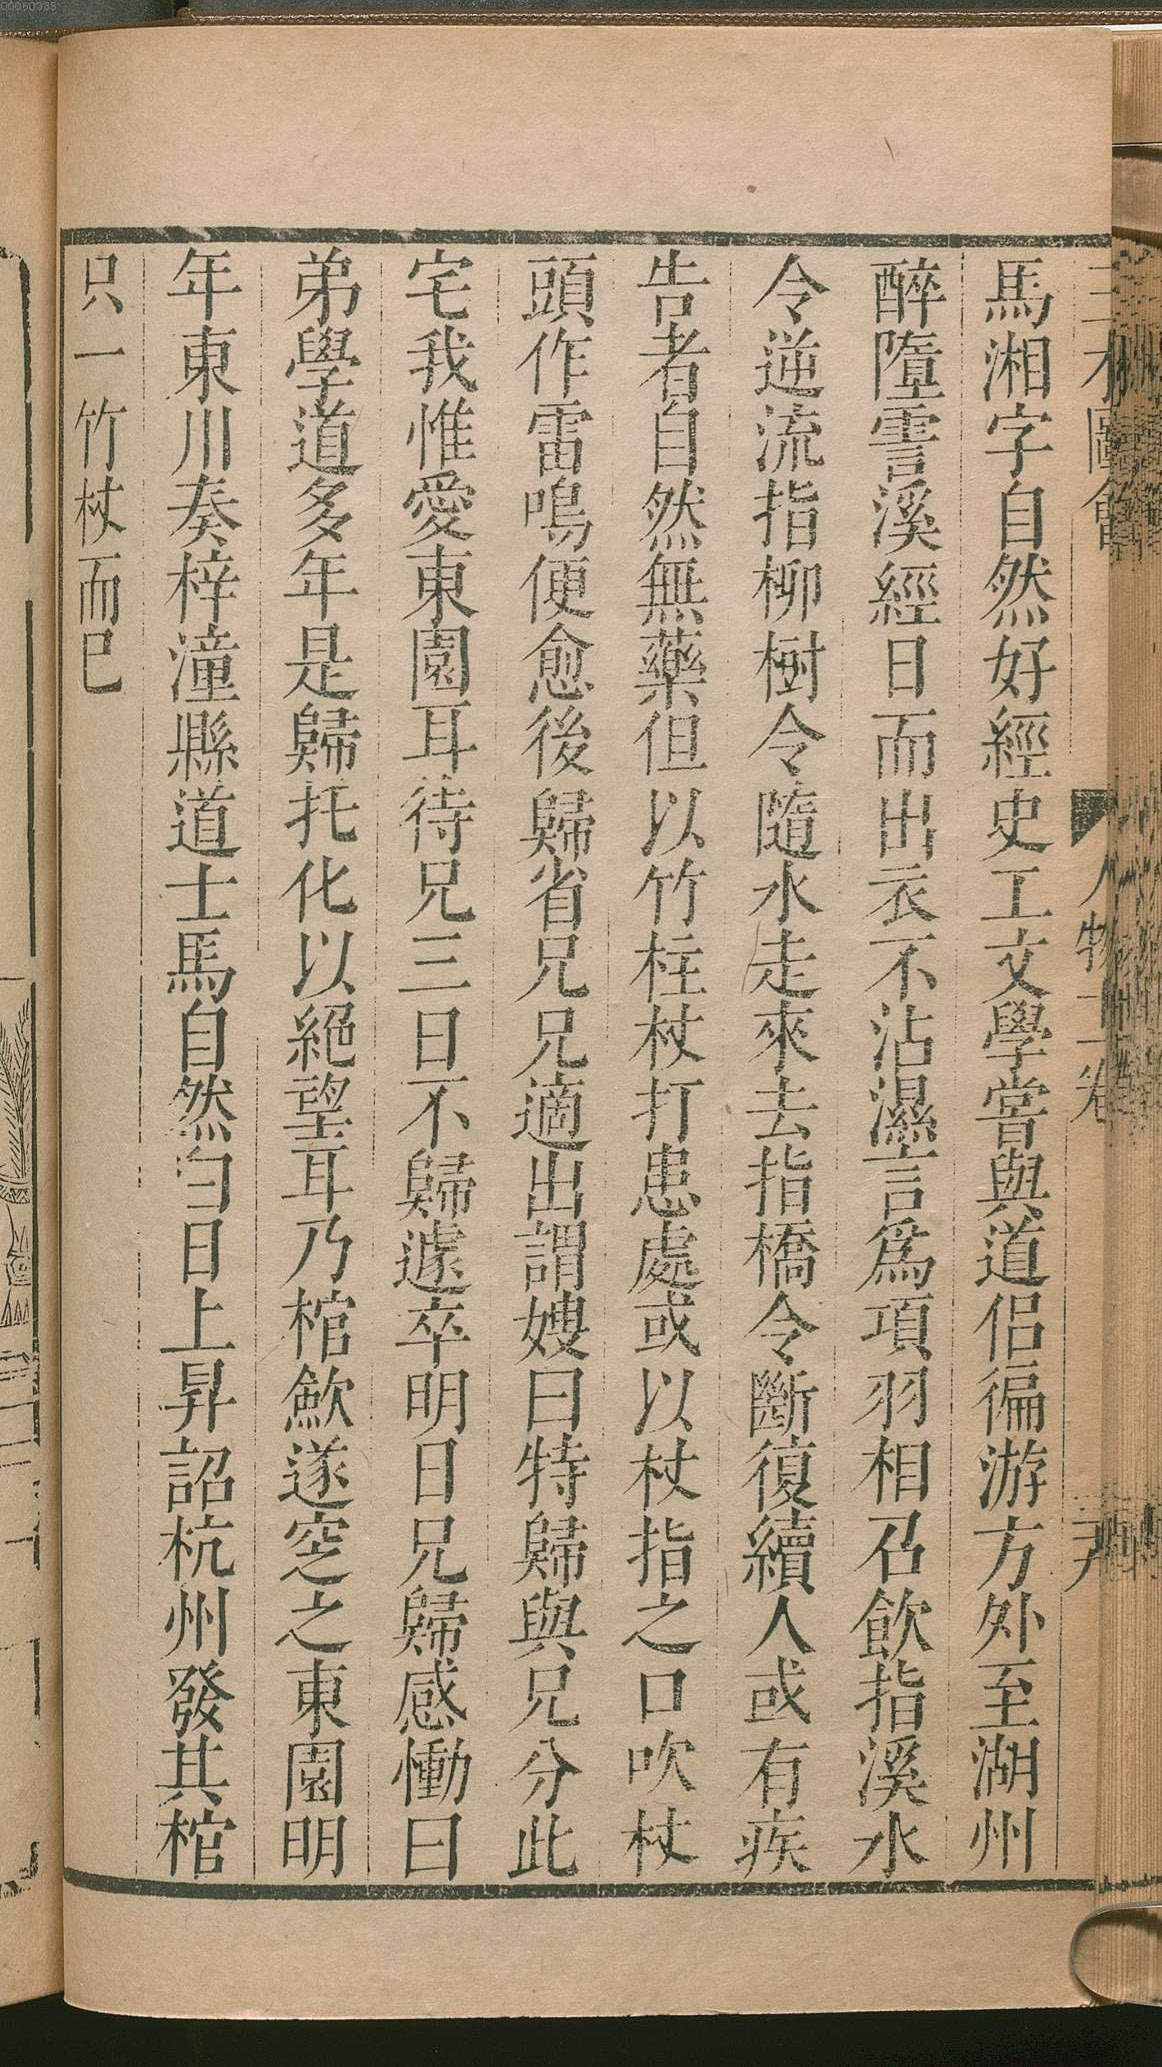 馬湘字自然好經史工文學嘗與道侣徧游方外至湖州
醉墮霅溪經日而出衣不沾濕言爲項羽相召飲指溪水
令逆流指柳樹令隨水走來去指橋令斷復續人或有疾
告者自然無藥但以竹柱杖打患處或以杖指之口吹杖
頭作雷鳴便愈後歸省兄兄適出謂嫂曰特歸與兄分此
宅我惟愛東園耳待兄三日不歸遽卒明日兄歸感慟曰
弟學道多年是歸托化以絕望耳乃棺歛遂窆之東園明
年東川奏梓潼縣道士馬自然白日上昇詔杭州發其棺
只一竹杖而已